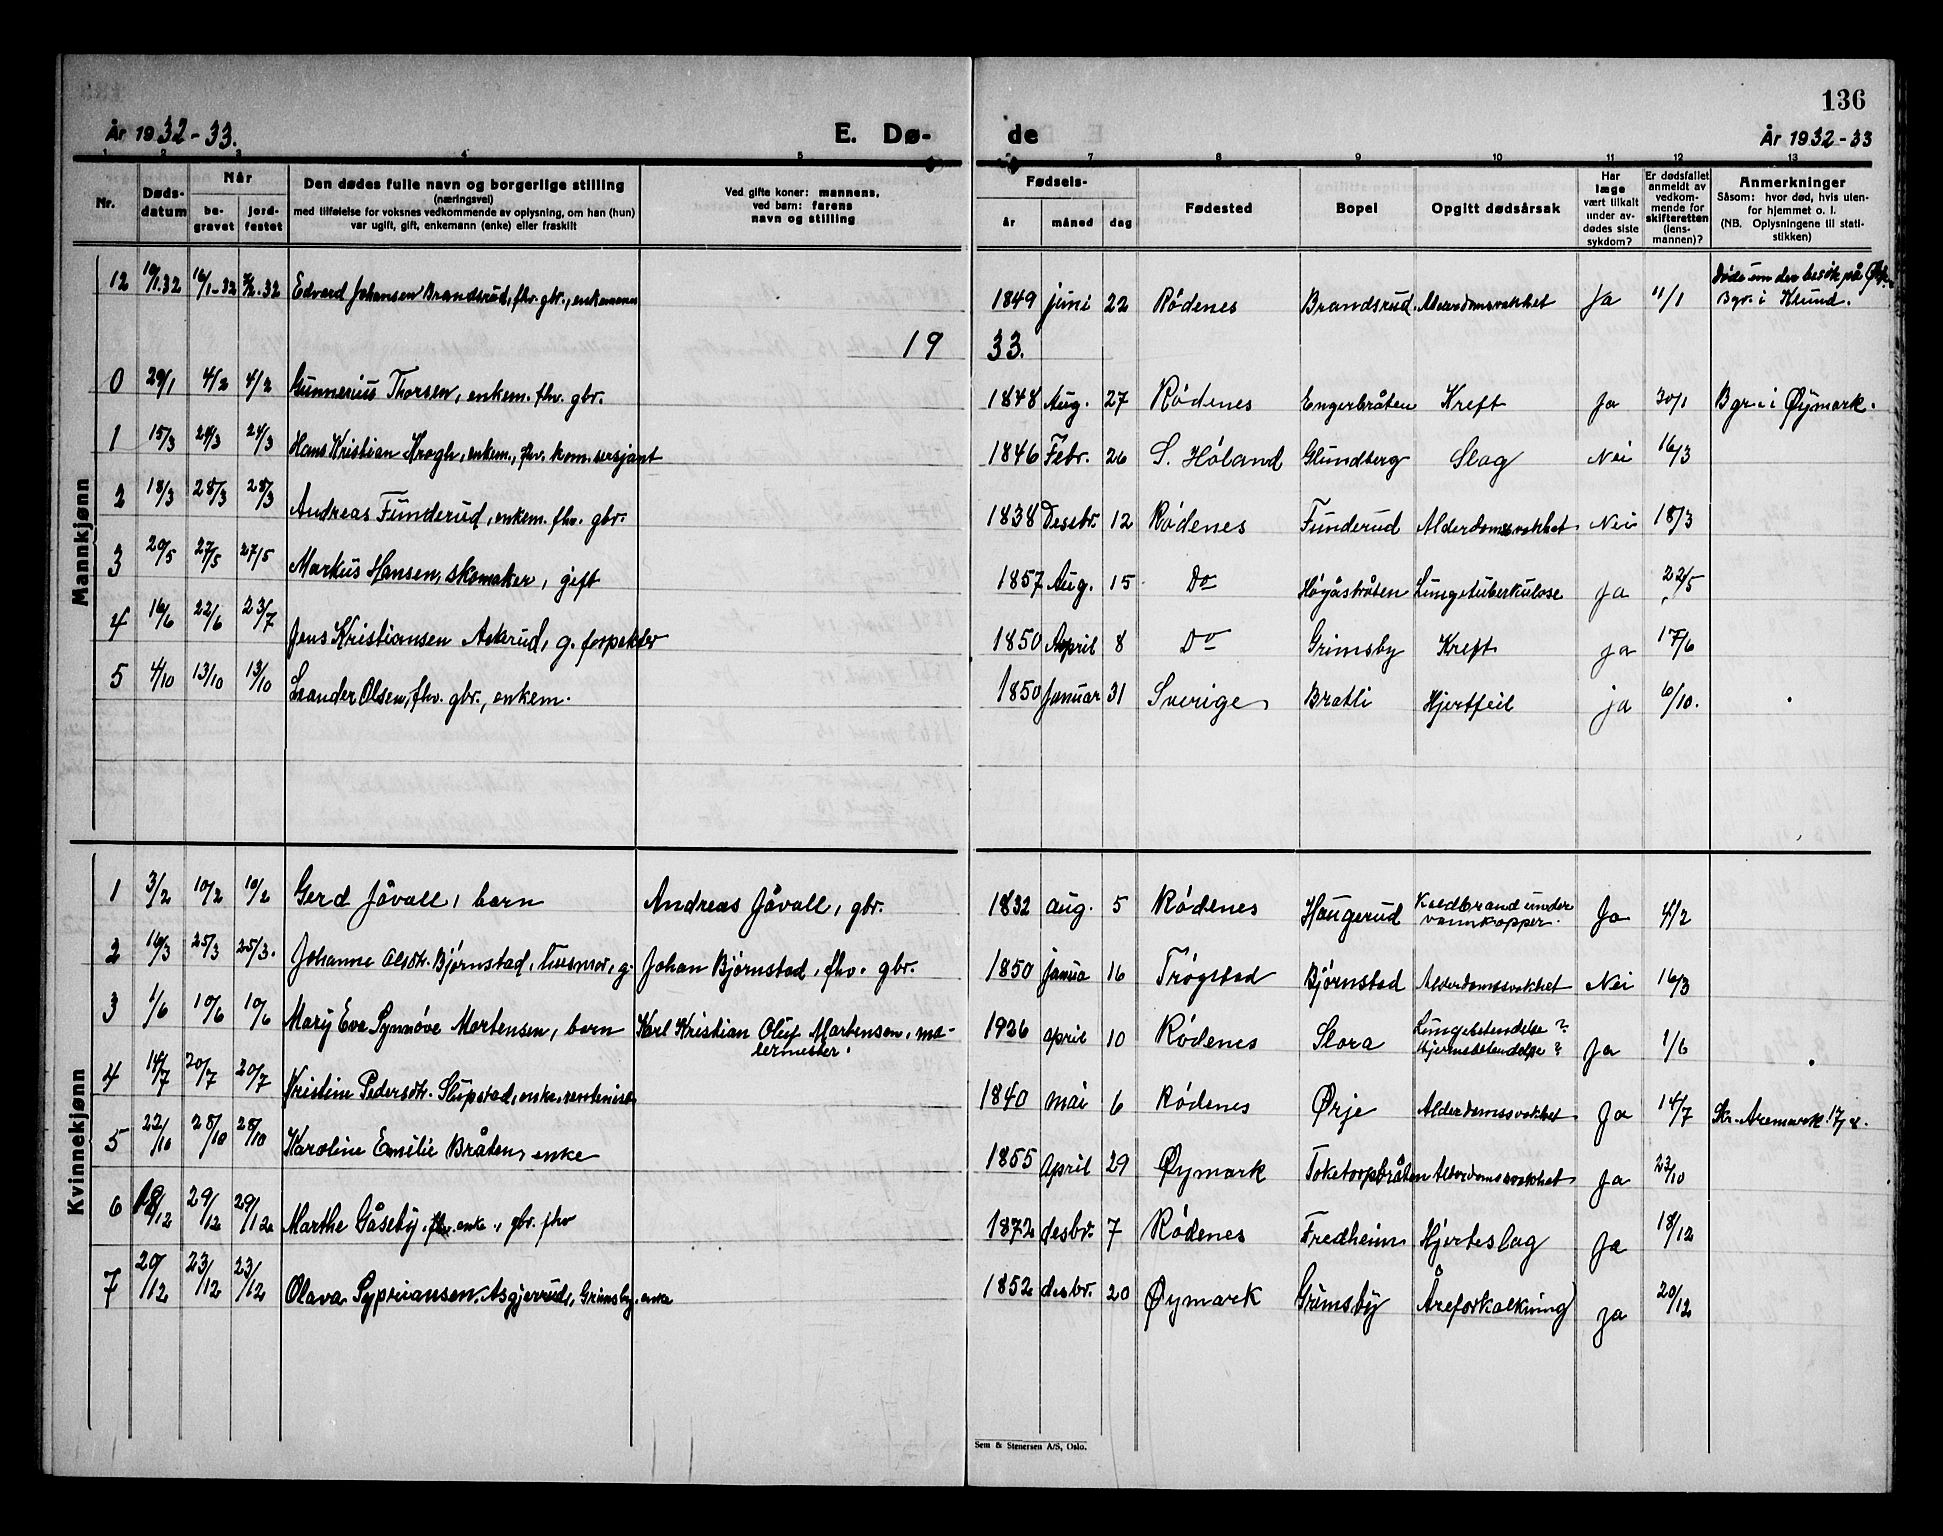 136
År 1932-33.
E. Dø-
de
År 1932-33
1 2 3 4 5 7 8 9 10 11 12 13
Nr.
Døds-
datum
Når
be-
gravet
jord-
festet
Den dødes fulle navn og borgerlige stilling
(næringsvei)
med tilføielse for voksnes vedkommende av oplysning, om han (hun)
var ugift, gift, enkemann (enke) eller fraskilt
Ved gifte koner: mannens,
ved barn: farens
navn og stilling
Fødsels-
år måned dag
Fødested
Bopel
Opgitt dødsårsak
Har
læge
vært tilkalt
under av-
dødes siste
sykdom?
Er dødsfallet
anmeldt av
vedkom-
mende for
skifteretten
(lens-
mannen)?
Anmerkninger
Såsom: hvor død, hvis uten-
for hjemmet o. l.
(NB. Oplysningene til stati-
stikken)
Mannkjønn
12 10/1.32 16/1-32 Edvard Johansen Brandsrud, fhv. gbr., enkemann 1849 juni 22 Rødenes Brandsrud. Alderdomssvakhet Ja 11/1 Døde under besök på
Bgr. i Klund.
19 33.
0 29/1 4/2 4/2 Gunnerius Thorsen, enkem. fhv. gbr. 1848 Aug. 27 Rødenes Engerbråten Kreft Ja 30/1 Bgr. i Øymark.
1 15/3 24/3 24/3 Hans Kristian Krogh, enkem., fhv. kom. sersjant 1846 Febr. 26 S. Høland Glundberg Slag Nei 16/3
2 18/3 28/3 28/3 Andreas Funderud, enkem. fhv. gbr. 1838 Desbr. 12 Rødenes Funderud Alderdomssvakhet Nei 18/3
3 20/5 27/5 27/5 Markus Hansen, skomaker, gift 1857 Aug. 15 Do Høgåsbråten Lungetuberkulose Ja 22/5
4 16/6 22/6 23/7 Jens Kristiansen Askerud, g. forpakter 1850 April 8 Do Grimsby Kreft ja 17/6
5 4/10 13/10 13/10 Leander Olsen, fhv. gbr., enkem. 1850 Januar 31 Sverige Bratli Hjertfeil ja 6/10.
Kvinnekjønn
1 3/2 10/2 10/2 Gerd Jåvall, barn Andreas Jåvall, gbr. 1832 aug. 5 Rødenes Haugerud Koldbrand under
vannkopper. Ja 4/2
2 16/3 25/3 25/3. Johanne Olsdtr. Bjørnstad, husmor, g. Johan Bjørnstad, fhv. gbr. 1850 janua 16 Trøgstad Bjørnstad Alderdomssvakhet Nei 16/3
3 1/6 10/6 10/6 Mary Eva Synnøve Mortensen, barn Karl Kristian Oluf Mortensen, ma-
lermester. 1926 april 10 Rødenes Slora Lungebetendelse?
Hjernebetendelse? Ja 1/6
4 14/7 20/7 20/7 Kristine Pedersdtr. Slupstad, enke, rentenist 1840 mai 6 Rødenes Ørje Alderdomssvakhet Ja 14/7 Skr. Aremark 17/8.
5 22/10 28/10 28/10 Karoline Emilie Bråten, enke 1855 april 29 Øymark Toketorpbråten Alderdomssvakhet Ja 23/10
6 18/12 29/12 29/12 Marthe Gåseby, enke, gbr. fhv 1872 desbr. 7 Rødenes Fredheim Hjerteslag Ja 18/12
7 20/12 23/12 23/12 Olava Sypriansen, Asgjerrud, Grimsby, enke 1852 desbr. 20 Øymark Grimsby Åreforkalkning ja 20/12
Sem & Stenersen A/S, Oslo.